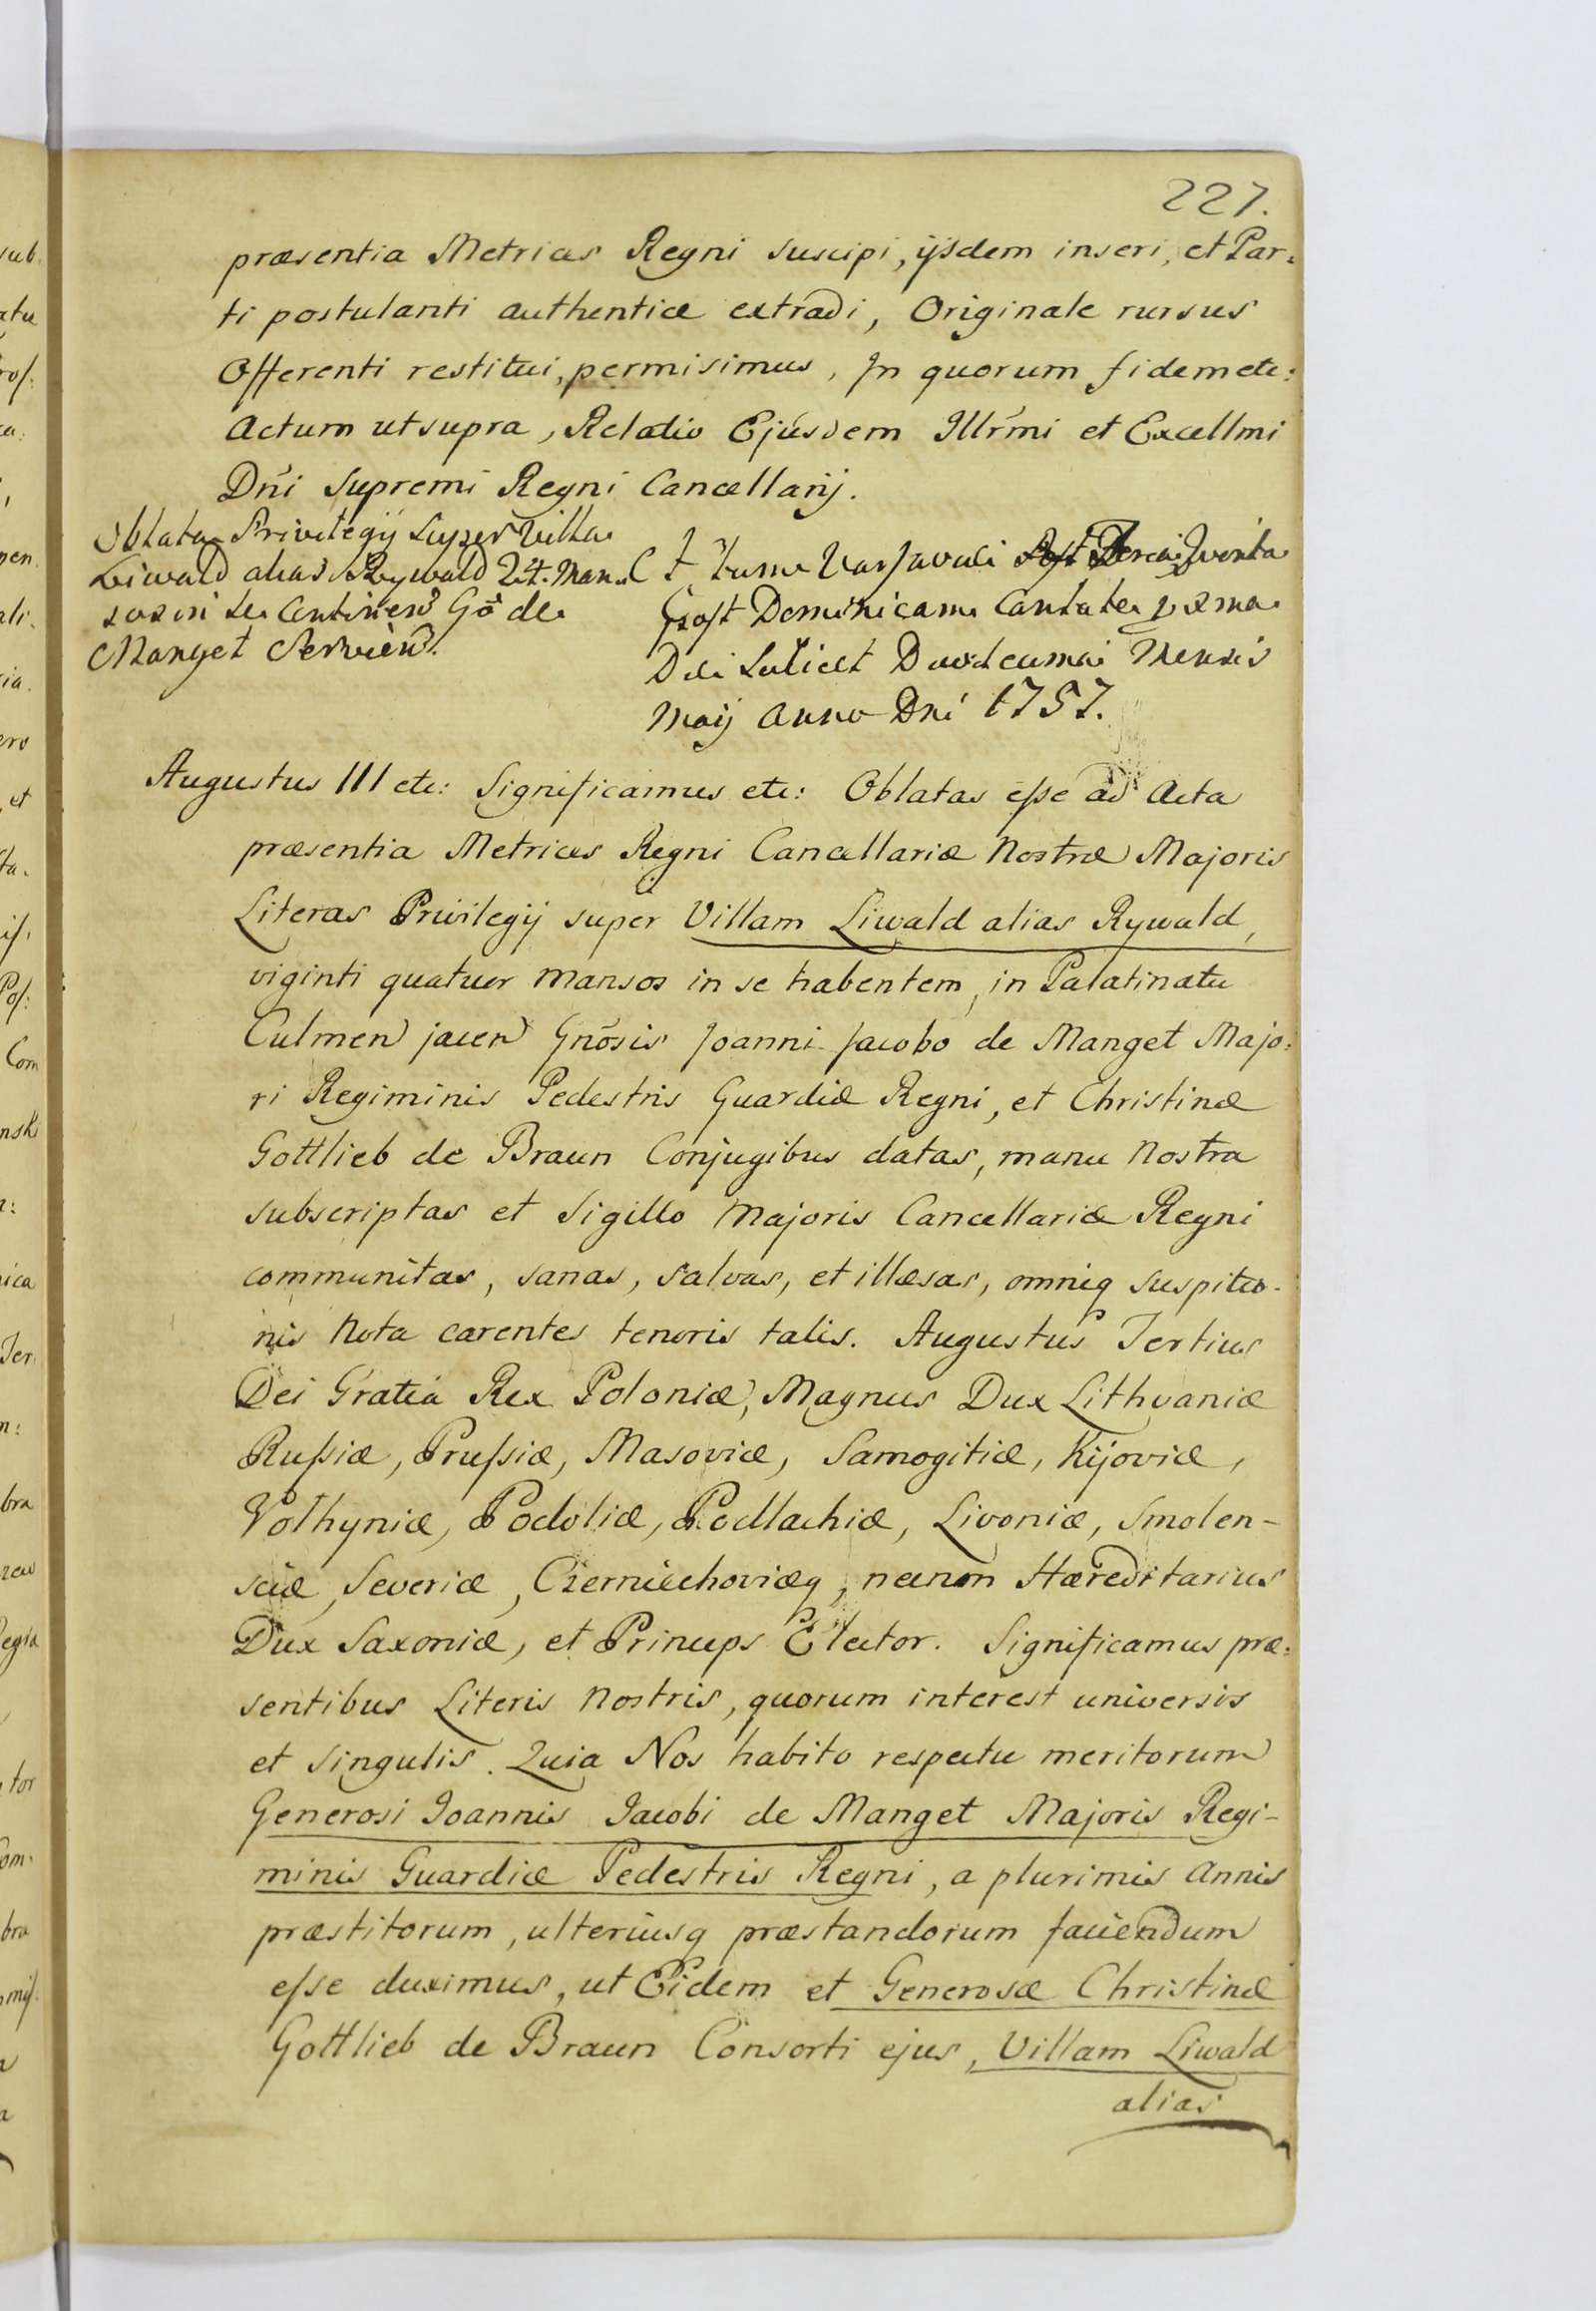 227.
præsentia Metrices Regni suscipi, ijsdem inseri, et Par:
ti postulanti authenticè extradi, Originale rursus
Offerenti restitui, permisimus, In quorum fidem etc:
Actum ut supra, Relatio Ejusdem Illrmi et Excellmi
Dni Supremi Regni Cancellarij.
Oblata Privilegij Super Villa
Liwald alias Rywald 24. Man
sos in se Continen Gö de
Manget Servien.
Actum Varsaviæ
Post Dominicam Cantate proxima
Die Scilicet Duodecima Mensis
Maij Anno Dni 1757.
Augustus III etc: Significamus etc: Oblatas esse ad Acta
præsentia Metrices Regni Cancellariæ Nostræ Majoris
Literas Privilegij super Villam Liwald alias Rywald,
viginti quatuor Mansos in se habentem, in Palatinatu
Culmen jacen Gnosis Joanni Jacobo de Manget Majo:
ri Regiminis Pedestris Guardiæ Regni, et Christinæ
Gottlieb de Braun Conjugibus datas, manu Nostra
subscriptas et Sigillo Majoris Cancellariæ Regni
communitas, sanas, salvas, et illæsas, omniq suspitio-
nis Nota carentes tenoris talis. Augustus Tertius
Dei Gratia Rex Poloniæ, Magnus Dux Lithvaniæ
Rußiæ, Prußiæ, Masoviæ, Samogitiæ, Kijoviæ,
Volhyniæ, Podoliæ, Podlachiæ, Livoniæ, Smolen-
sciæ, Severiæ, Czerniechoviæq, necnon Hæreditarius
Dux Saxoniæ, et Princeps Elector. Significamus præ:
sentibus Literis Nostris, quorum interest universis
et singulis. Quia Nos habito respectu meritorum
Generosi Joannis Jacobi de Manget Majoris Regi-
minis Guardiæ Pedestris Regni, a plurimis Annis
præstitorum, ulteriusq præstandorum faciendum
esse duximus, ut Eidem et Generosæ Christinæ
Gottlieb de Braun Consorti ejus, Villam Liwald
alias